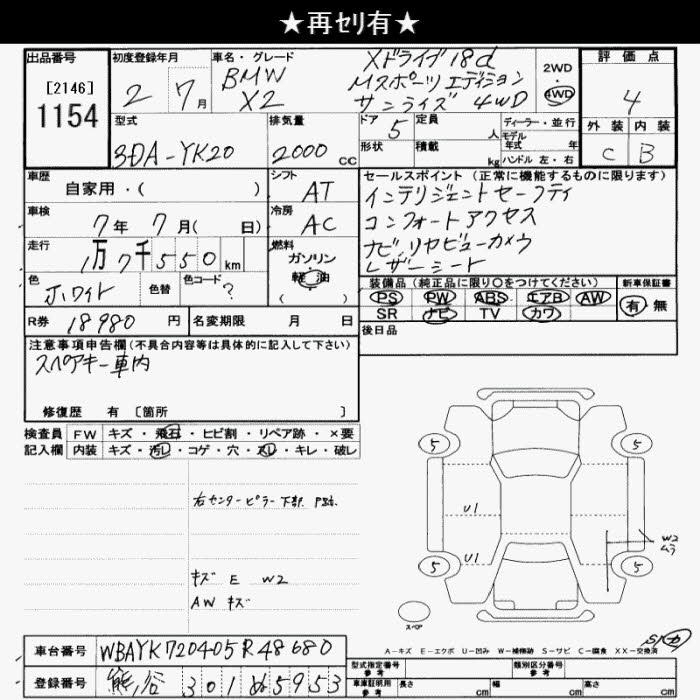 ★再ｾﾘ有★
出品番号
[2146]
1154
初度登録年月
2 7月
車名・グレード
BMW
X2
Xドライブ18d
Mスポーツエディション
サンライズ 4WD
2WD
4WD
評価点
4
外装 内装
C B
型式
3DA-YK20
排気量
2000 CC
ドア 5
定員 人
形状
積載 kg
ディーラー・並行
モデル年式 年
ハンドル 左・右
車歴
自家用・( )
シフト AT
車検
7年7月( 日)
冷房 AC
走行
1万7千550km
燃料
ガソリン
軽油
( )
色 ホワイト
色替
色コード ?
R券 18980円
名変期限 月 日
セールスポイント(正常に機能するものに限ります)
インテリジェントセーフティ
コンフォートアクセス
ナビ、リヤビューカメラ
レザーシート
装備品(純正品に限り○をつけてください)
PS PW ABS エアB AW
SR ナビ TV カワ
新車保証書
有・無
後日品
注意事項申告欄(不具合内容等は具体的に記入して下さい)
スペアキー車内
修復歴 有 [箇所 ]
検査員記入欄
FW キズ・飛石・ヒビ割・リペア跡・×要
内装 キズ・汚レ・コゲ・穴・スレ・キレ・破レ
右センターピラー下部
キズ E W2
AW キズ
5 5
U1
U1
W2
ムラ
5 5
スペア
A-キズ E-エクボ U-凹み W-補修跡 S-サビ C-腐食 XX-交換済
車台番号 WBAYK720405R48680
登録番号 熊谷 301 ぬ 5953
型式指定番号
参考
類別区分番号
参考
車庫証明用
参考
長さ cm
幅 cm
高さ cm